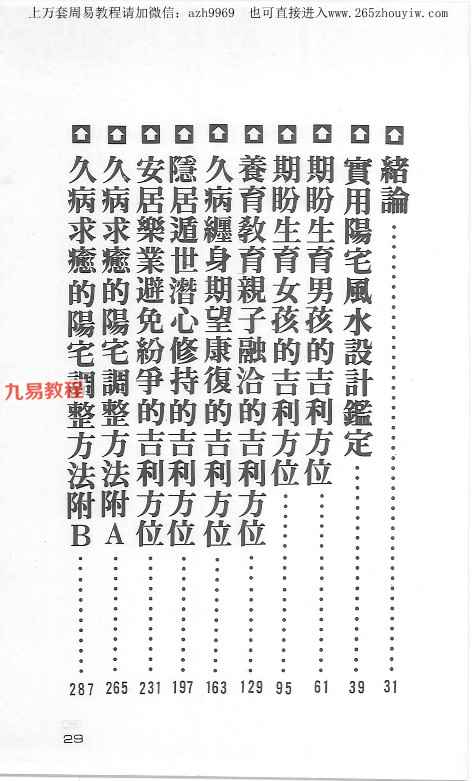 上万套周易教程请加微信：azh9969　也可直接进入www.265zhouyiw.com
緒論……31
實用陽宅風水設計鑑定……39
期盼生育男孩的吉利方位……61
期盼生育女孩的吉利方位……95
養育敎育親子融洽的吉利方位……129
久病纏身期望康復的吉利方位……163
隱居遁世潛心修持的吉利方位……197
安居樂業避免紛爭的吉利方位……231
久病求癒的陽宅調整方法附A……265
久病求癒的陽宅調整方法附B……287
九易教程
29